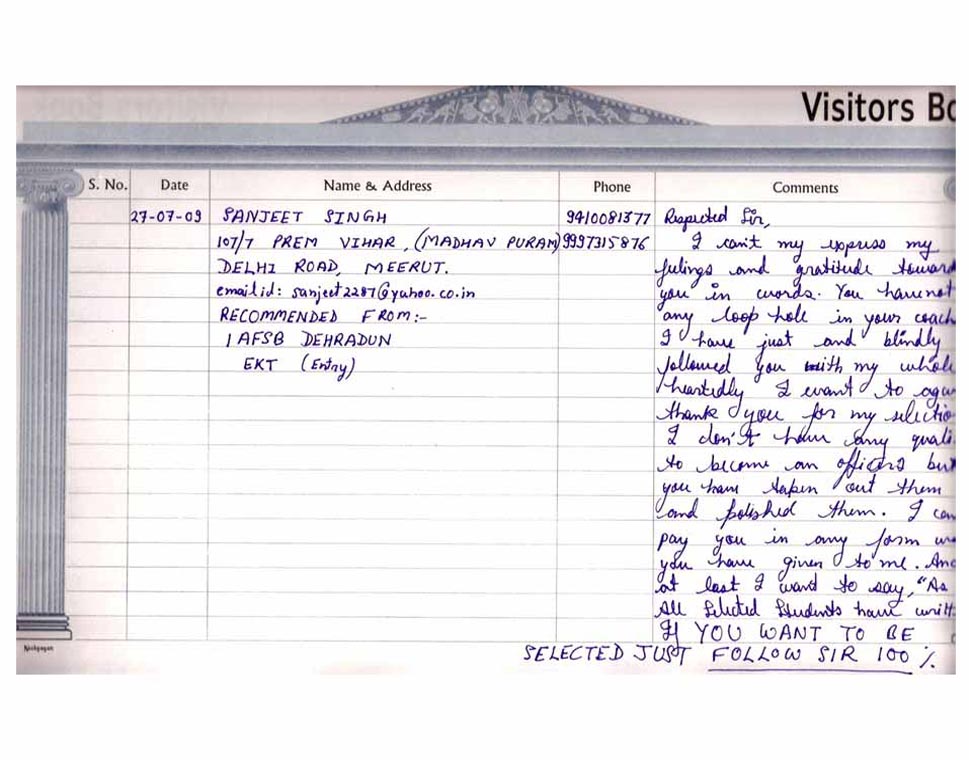 Visitors Bo
S. No. Date Name & Address Phone Comments
27-07-09 SANJEET SINGH 9410081377 Respected Sir,
107/7 PREM VIHAR, (MADHAV PURAM) 9997315876 I can't my express my
DELHI ROAD, MEERUT. felings and gratitude toward
email id: sanjeet2287@yahoo.co.in you in words. You have not
RECOMMENDED FROM:- any loop hole in your coach
1 AFSB DEHRADUN I have just and blindly
EKT (Entry) followed you with my whole
heartedly I want to aga
thank you for my selectio
I don't have any quali
to become an officers but
you have out them
and polished them. I can
pay you in any form w
you have given to me. And
at last I want to say, "As
all selected students have writt
If YOU WANT TO BE
SELECTED JUST FOLLOW SIR 100%.
Neelgagan